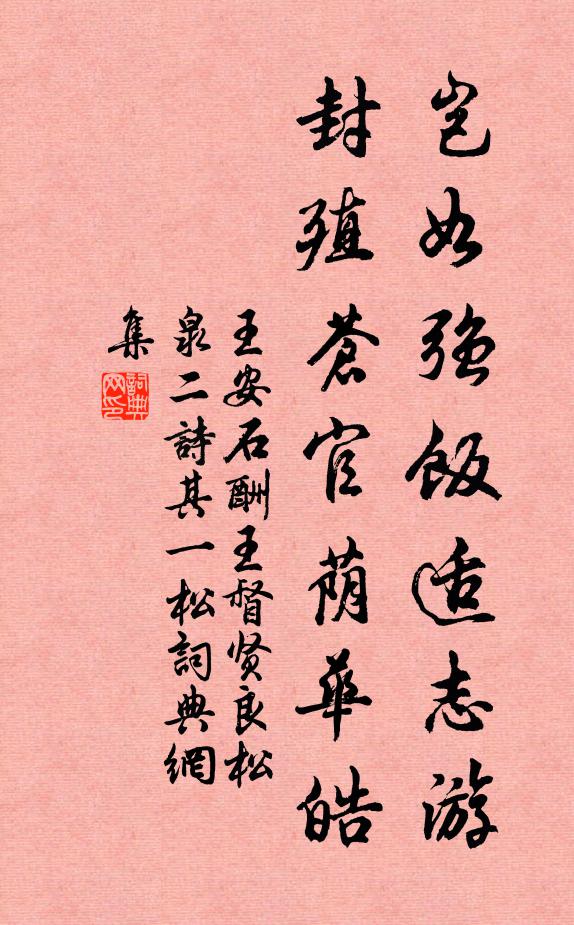 岂如强飯适志游
封殖蒼官荫華皓
王安石酬王督贤良松
泉二詩其一松詞典網
集
詞典网印